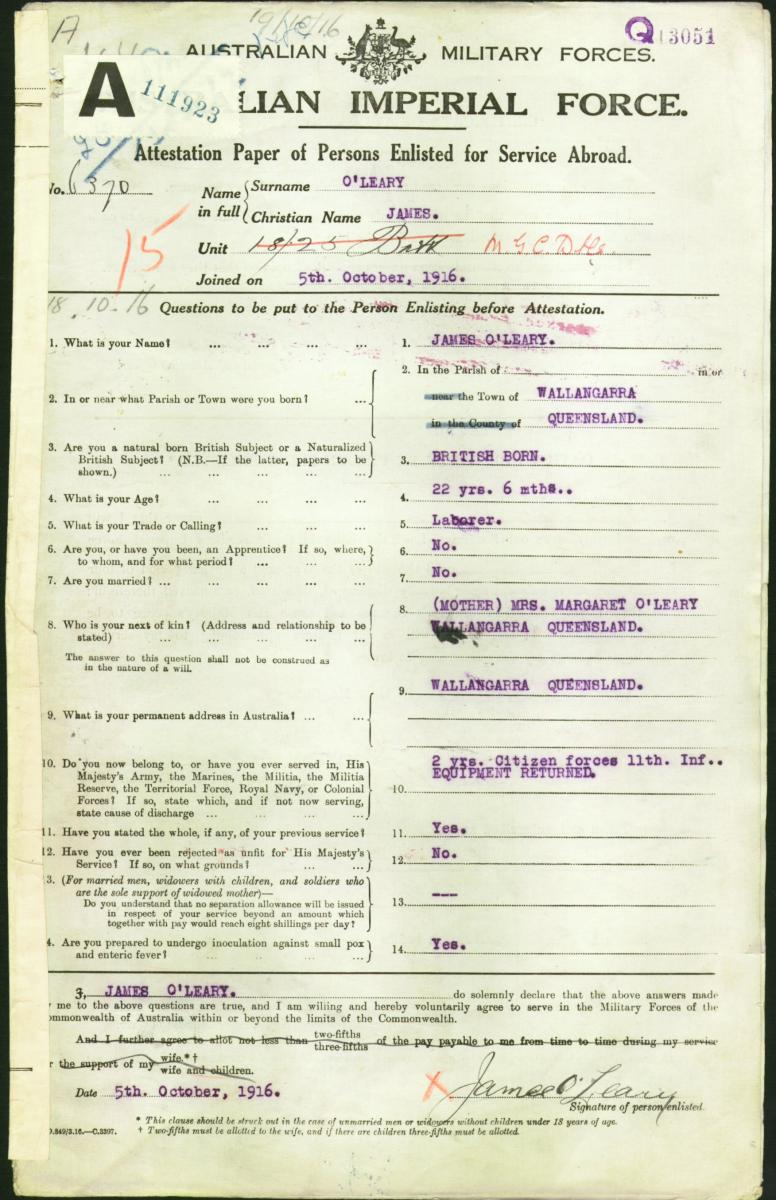 A 19/10/16 Q 13051
AUSTRALIAN MILITARY FORCES.
A 111923 LIAN IMPERIAL FORCE.
Attestation Paper of Persons Enlisted for Service Abroad.
No. 6370 Name in full { Surname O'LEARY
Christian Name JAMES.
15 Unit 18/25 Batt M.G.C.
Joined on 5th. October, 1916.
18.10.16 Questions to be put to the Person Enlisting before Attestation.
1. What is your Name? ... ... ... ... 1. JAMES O'LEARY.
2. In or near what Parish or Town were you born? ... 2. In the Parish of in or
near the Town of WALLANGARRA
in the County of QUEENSLAND.
3. Are you a natural born British Subject or a Naturalized
British Subject? (N.B.—If the latter, papers to be
shown.) ... ... ... ... ... 3. BRITISH BORN.
4. What is your Age? ... ... ... ... 4. 22 yrs. 6 mths..
5. What is your Trade or Calling? ... ... ... 5. Laborer.
6. Are you, or have you been, an Apprentice? If so, where,
to whom, and for what period? ... ... ... 6. No.
7. Are you married? ... ... ... ... ... 7. No.
8. Who is your next of kin? (Address and relationship to be
stated) ... ... ... ... ... 8. (MOTHER) MRS. MARGARET O'LEARY
WALLANGARRA QUEENSLAND.
The answer to this question shall not be construed as
in the nature of a will.
9. What is your permanent address in Australia? ... ... 9. WALLANGARRA QUEENSLAND.
10. Do you now belong to, or have you ever served in, His
Majesty's Army, the Marines, the Militia, the Militia
Reserve, the Territorial Force, Royal Navy, or Colonial
Forces? If so, state which, and if not now serving,
state cause of discharge ... ... ... ... 10. 2 yrs. Citizen forces 11th. Inf..
EQUIPMENT RETURNED.
11. Have you stated the whole, if any, of your previous service? 11. Yes.
12. Have you ever been rejected as unfit for His Majesty's
Service? If so, on what grounds? ... ... 12. No.
3. (For married men, widowers with children, and soldiers who
are the sole support of widowed mother)—
Do you understand that no separation allowance will be issued
in respect of your service beyond an amount which
together with pay would reach eight shillings per day? 13. ---
4. Are you prepared to undergo inoculation against small pox
and enteric fever? ... ... ... ... 14. Yes.
I, JAMES O'LEARY. do solemnly declare that the above answers made
me to the above questions are true, and I am willing and hereby voluntarily agree to serve in the Military Forces of the
ommonwealth of Australia within or beyond the limits of the Commonwealth.
And I further agree to allot not less than two-fifths three-fifths of the pay payable to me from time to time during my service
the support of my wife.*† wife and children.
Date 5th. October, 1916. X James O'Leary
Signature of person enlisted.
* This clause should be struck out in the case of unmarried men or widowers without children under 18 years of age.
.849/3.16.—C.3397. † Two-fifths must be allotted to the wife, and if there are children three-fifths must be allotted.